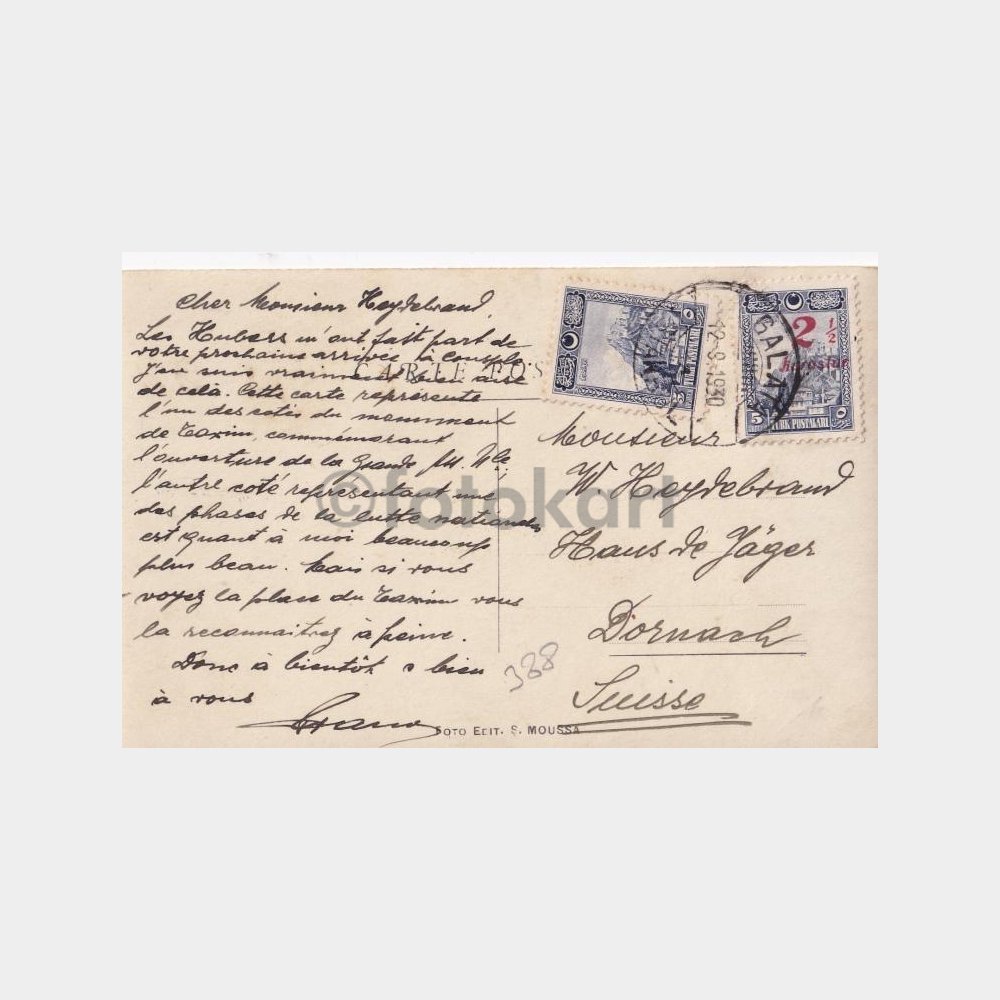 Cher Monsieur Heydebrand,
Les Hubers m'ont fait part de
votre prochaine arrivée à Cousple.
J'en suis vraiment bien aise
de celà. Cette carte représente
l'un des cotés du monument
de Taxim, commémorant
l'ouverture de la Grande
l'autre coté représentant une
des phases de la lutte nationale
est quant à moi beaucoup
plus beau. Mais si vous
voyez la place du Taxim vous
la reconnaitrez à peine.
Donc à bientôt & bien
à vous
CARTE POS
Monsieur
W Heydebrand
Haus de Jäger
Dornach
Suisse
388
FOTO EDIT. S. MOUSSA
GALATA
12-9-1930
2 1/2
5
TÜRK POSTALARI
©fotokart